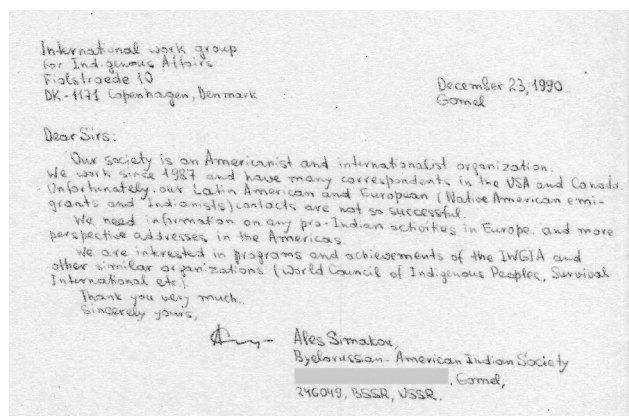 International work group
for Indigenous Affairs
Fiolstraede 10
DK-1171 Copenhagen, Denmark
December 23, 1990
Gomel
Dear Sirs:
Our society is an Americanist and internationalist organization.
We work since 1987 and have many correspondents in the USA and Canada.
Unfortunately, our Latin American and European (Native American emi-
grants and Indianists) contacts are not so successful.
We need information on any pro-Indian activities in Europe. and more
perspective addresses in the Americas.
We are intrested in programs and achievements of the IWGIA and
other similar organizations (World Council of Indigenous Peoples, Survival
International etc.).
Thank you very much.
Sincerely yours,
Ales Simakou,
Byelorussian-American Indian Society
, Gomel,
246049, BSSR, USSR.